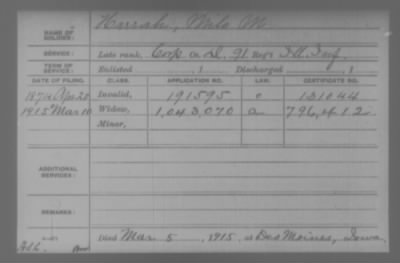 NAME OF SOLDIER: Harrah, Milo M.
SERVICE: Late rank, Corp. Co. D, 91 Reg't Ill. Inf.
TERM OF SERVICE: Enlisted , 1 Discharged , 1
DATE OF FILING. CLASS. APPLICATION NO. LAW. CERTIFICATE NO.
1874 Apr 20 Invalid, 191595 c 131044
1915 Mar 10 Widow, 1,043,070 a 796,412
Minor,
ADDITIONAL SERVICES:
REMARKS:
Died Mar 5, 1915, at Des Moines, Iowa.